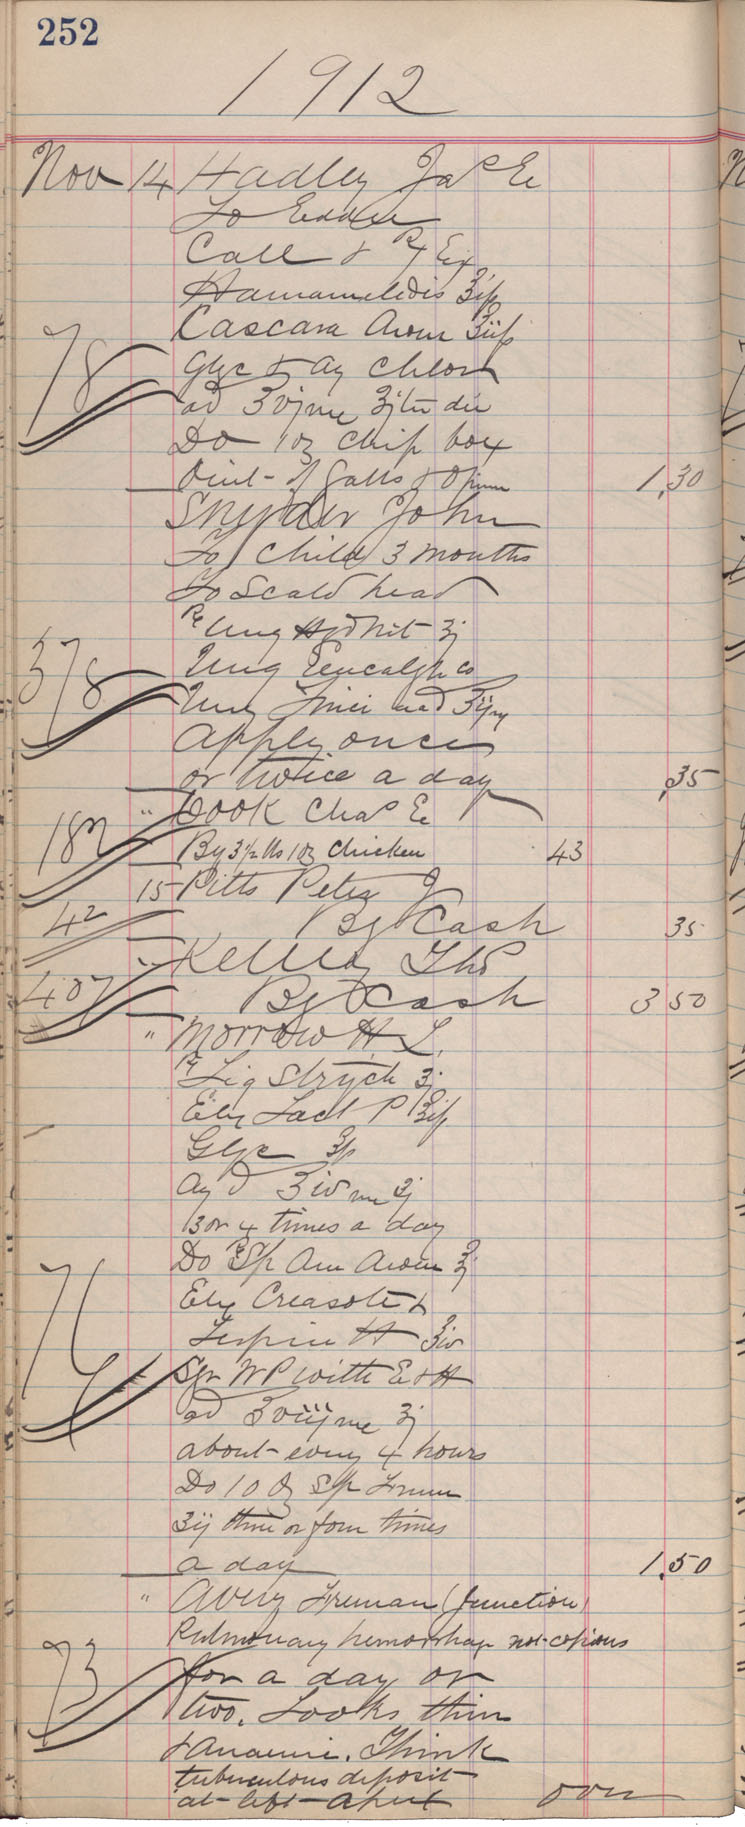 252
1912
Nov 14 Hadley Jas E
To Eddie
Call & Rx Ex
Hamamelidis ʒip
Cascara Arom ʒiip
Glyc & Aq Chlor
ad ʒvj me ʒj ter die
Do 1 oz chip box
78
Oint- of Galls & Opium 1.30
Snyder John
To Child 3 months
To Scald head
Rx Ung Hyd Nit ʒj
Ung Eucalyp co
378
Ung Zinci aad ʒij
Apply once
or twice a day .35
" Cook Chas E
182 By 3½ lbs 10z chicken 43
15 Pitts Peter J
42 By Cash 35
" Kelley Thos
407 By Cash 3 50
" Morrow H L.
Rx Liq Strych ʒj
Elix Lact P ʒip
Glyc ʒp
Aq d ʒiv me ʒj
3 or 4 times a day
Do Rx Sp Am Arom ʒj
Elix Creasote &
Terpin H ʒiv
Syr W P with E & H
76
ad ʒviij me ʒj
about every 4 hours
Do 10 oz Sp Frum
ʒij three or four times
a day 1.50
" Avery Freman (Junction)
Pulmonary hemorrhage not-copious
73
for a day or
two. Looks thin
& Anaemic. Think
tuberculous deposit
at- left- Apex over